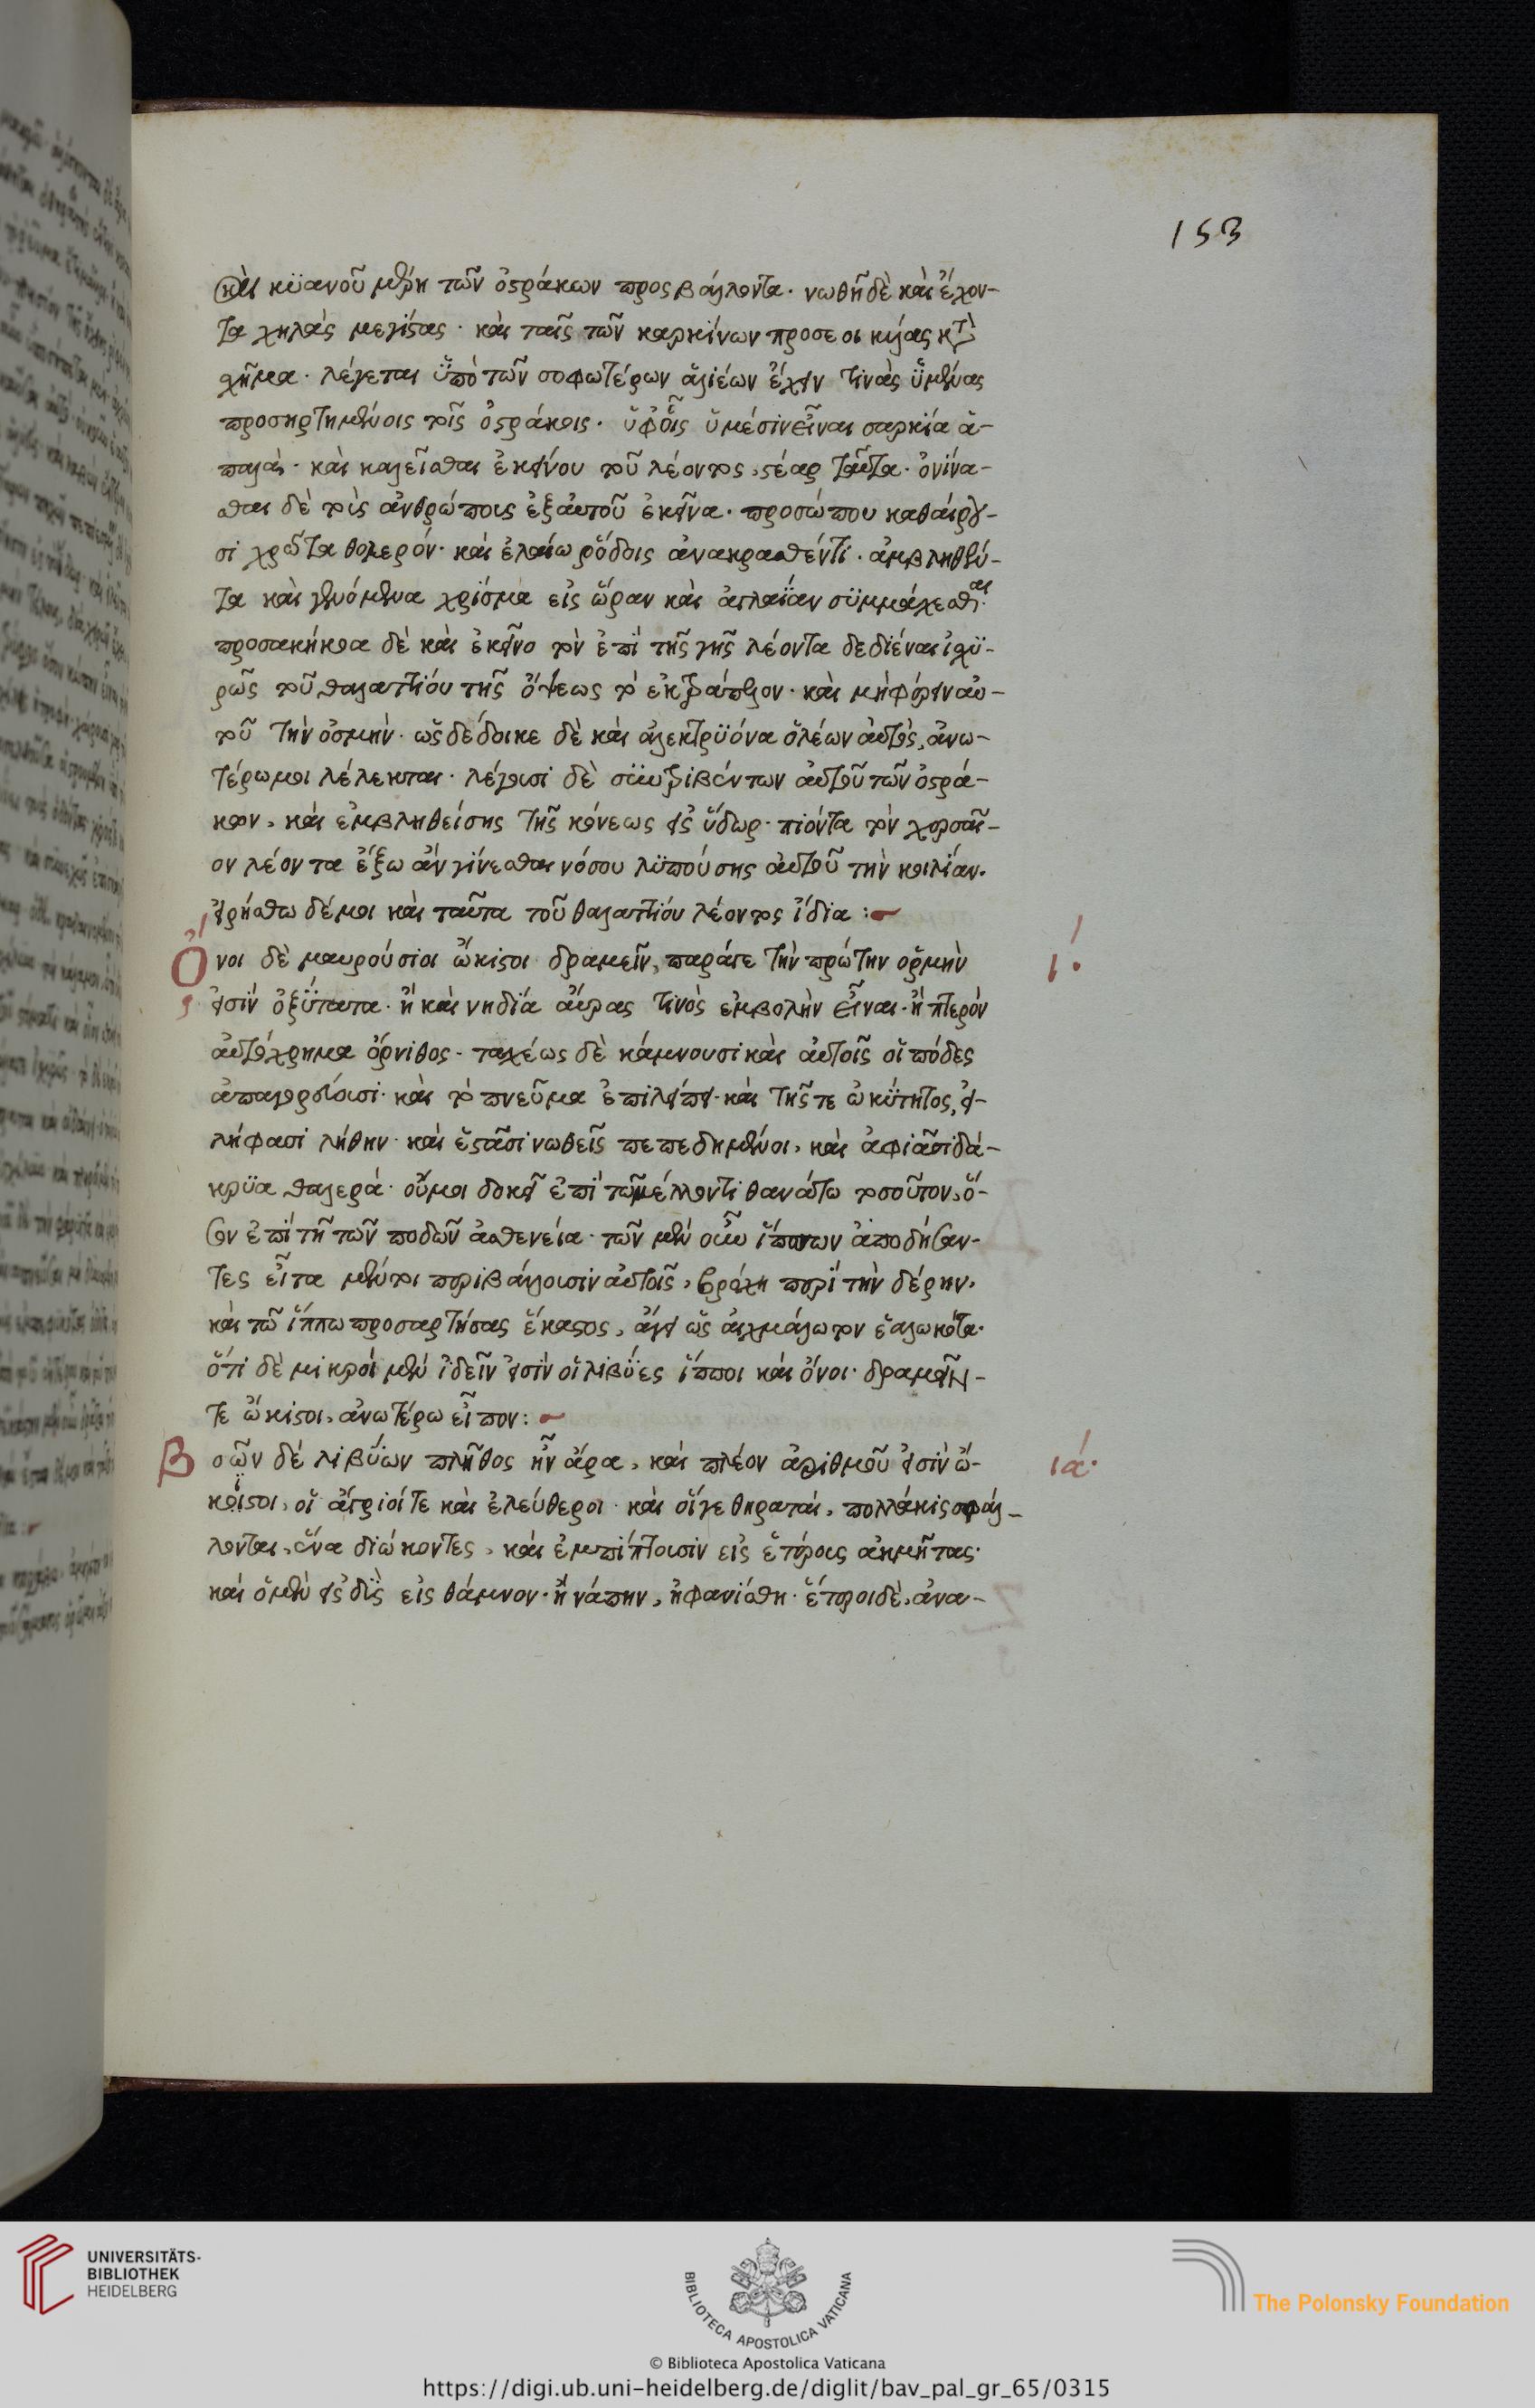 153
καὶ κϋανοῦ μέρη τῶν ὀστράκων προσβάλλοντα. νωθῆ δὲ καὶ ἔχον-
τα χηλὰς μεγίστας. καὶ ταῖς τῶν καρκίνων προσεοικυίας κτ̀
σχῆμα. λέγεται ὑπὸ τῶν σοφωτέρων ἁλιέων ἔχειν τινὰς ὑμένας
προσηρτημένοις τοῖς ὀστράκοις. ὑφ' οἷς ὑμέσιν εἶναι σαρκία ἁ-
παλά. καὶ καλεῖσθαι ἐκείνου τοῦ λέοντος, στέαρ ταῦτα. ὀνίνα-
σθαι δὲ τοὶς ἀνθρώποις ἐξ αὐτοῦ ἐκεῖνα. προσώπου καθαίρου-
σι χρῶτα θολερόν. καὶ ἐλαίω ῥόδοις ἀνακρασθέντι. ἀμβληθέν-
τα καὶ γενόμενα χρίσμα εἰς ὥραν καὶ ἀγλαΐαν συμμάχεσθαι.
προσακήκοα δὲ καὶ ἐκεῖνο τὸν ἐπὶ τῆς γῆς λέοντα δεδιέναι ἰσχυ-
ρῶς τοῦ θαλαττίου τῆς ὄψεως τὸ ἐκτράπελον. καὶ μὴ φέρειν αὐ-
τοῦ τὴν ὀσμήν. ὡς δέδοικε δὲ καὶ ἀλεκτρυόνα ὁ λέων αὐτὸς, ἀνω-
τέρω μοι λέλεκται. λέγουσι δὲ συντριβέντων αὐτοῦ τῶν ὀστρά-
κων, καὶ ἐμβληθείσης τῆς κόνεως εἰς ὕδωρ. πιόντα τὸν χερσαῖ-
ον λέοντα ἔξω ἂν γίνεσθαι νόσου λυπούσης αὐτοῦ τὴν κοιλίαν.
εἰρήσθω δέ μοι καὶ ταῦτα τοῦ θαλαττίου λέοντος ἴδια :~
Ὄνοι δὲ μαυρούσιοι ὤκιστοι δραμεῖν, παρά γε τὴν πρώτην ὁρμὴν
ι.
εἰσὶν ὀξύτατα. ἢ καὶ νηδία αὔρας τινὸς ἐμβολὴν εἶναι. ἢ πτερὸν
αὐτόχρημα ὄρνιθος. ταχέως δὲ κάμνουσι καὶ αὐτοῖς οἱ πόδες
ἀπαγορεύουσι. καὶ τὸ πνεῦμα ἐπιλείπει. καὶ τῆς τε ὠκύτητος, εἰ-
λήφασι λήθην. καὶ ἑστᾶσι νωθεῖς πεπεδημένοι, καὶ ἀφιᾶσι δά-
κρυα θαλερά. οὔ μοι δοκεῖ ἐπὶ τῶ μέλλοντι θανάτω τοσοῦτον, ὅ-
σον ἐπὶ τῆ τῶν ποδῶν ἀσθενεία. τῶν μὲν οὖν ἵππων ἀποδήσαν-
τες εἶτα μέντοι περιβάλλουσιν αὐτοῖς, βρόχη περὶ τὴν δέρην.
καὶ τῶ ἵππω προσαρτήσας ἕκαστος, ἄγει ὡς αἰχμάλωτον ἑαλωκότα.
ὅτι δὲ μικροί μὲν ἰδεῖν εἰσὶν οἱ λίβυες ἵπποι καὶ ὄνοι. δραμεῖν-
τε ὤκιστοι, ἀνωτέρω εἶπον :~
Βοῶν δὲ λιβύων πλῆθος ἦν ἄρα, καὶ πλέον ἀριθμοῦ εἰσὶν ὤ-
ια.
κιστοι, οἵ ἄγριοί τε καὶ ἐλεύθεροι. καὶ οἵγε θηραταί, πολλάκις σφάλ-
λονται, ἕνα διώκοντες, καὶ ἐμπίπτουσιν εἰς ἑτέρους ἀκμῆτας.
καὶ ὁ μὲν εἰσδὺς εἰς θάμνον. ἢ νάπην, ἠφανίσθη. ἕτεροι δὲ, ἀνα-
UNIVERSITÄTS-
BIBLIOTHEK
HEIDELBERG
BIBLIOTECA APOSTOLICA VATICANA
The Polonsky Foundation
© Biblioteca Apostolica Vaticana
https://digi.ub.uni-heidelberg.de/diglit/bav_pal_gr_65/0315